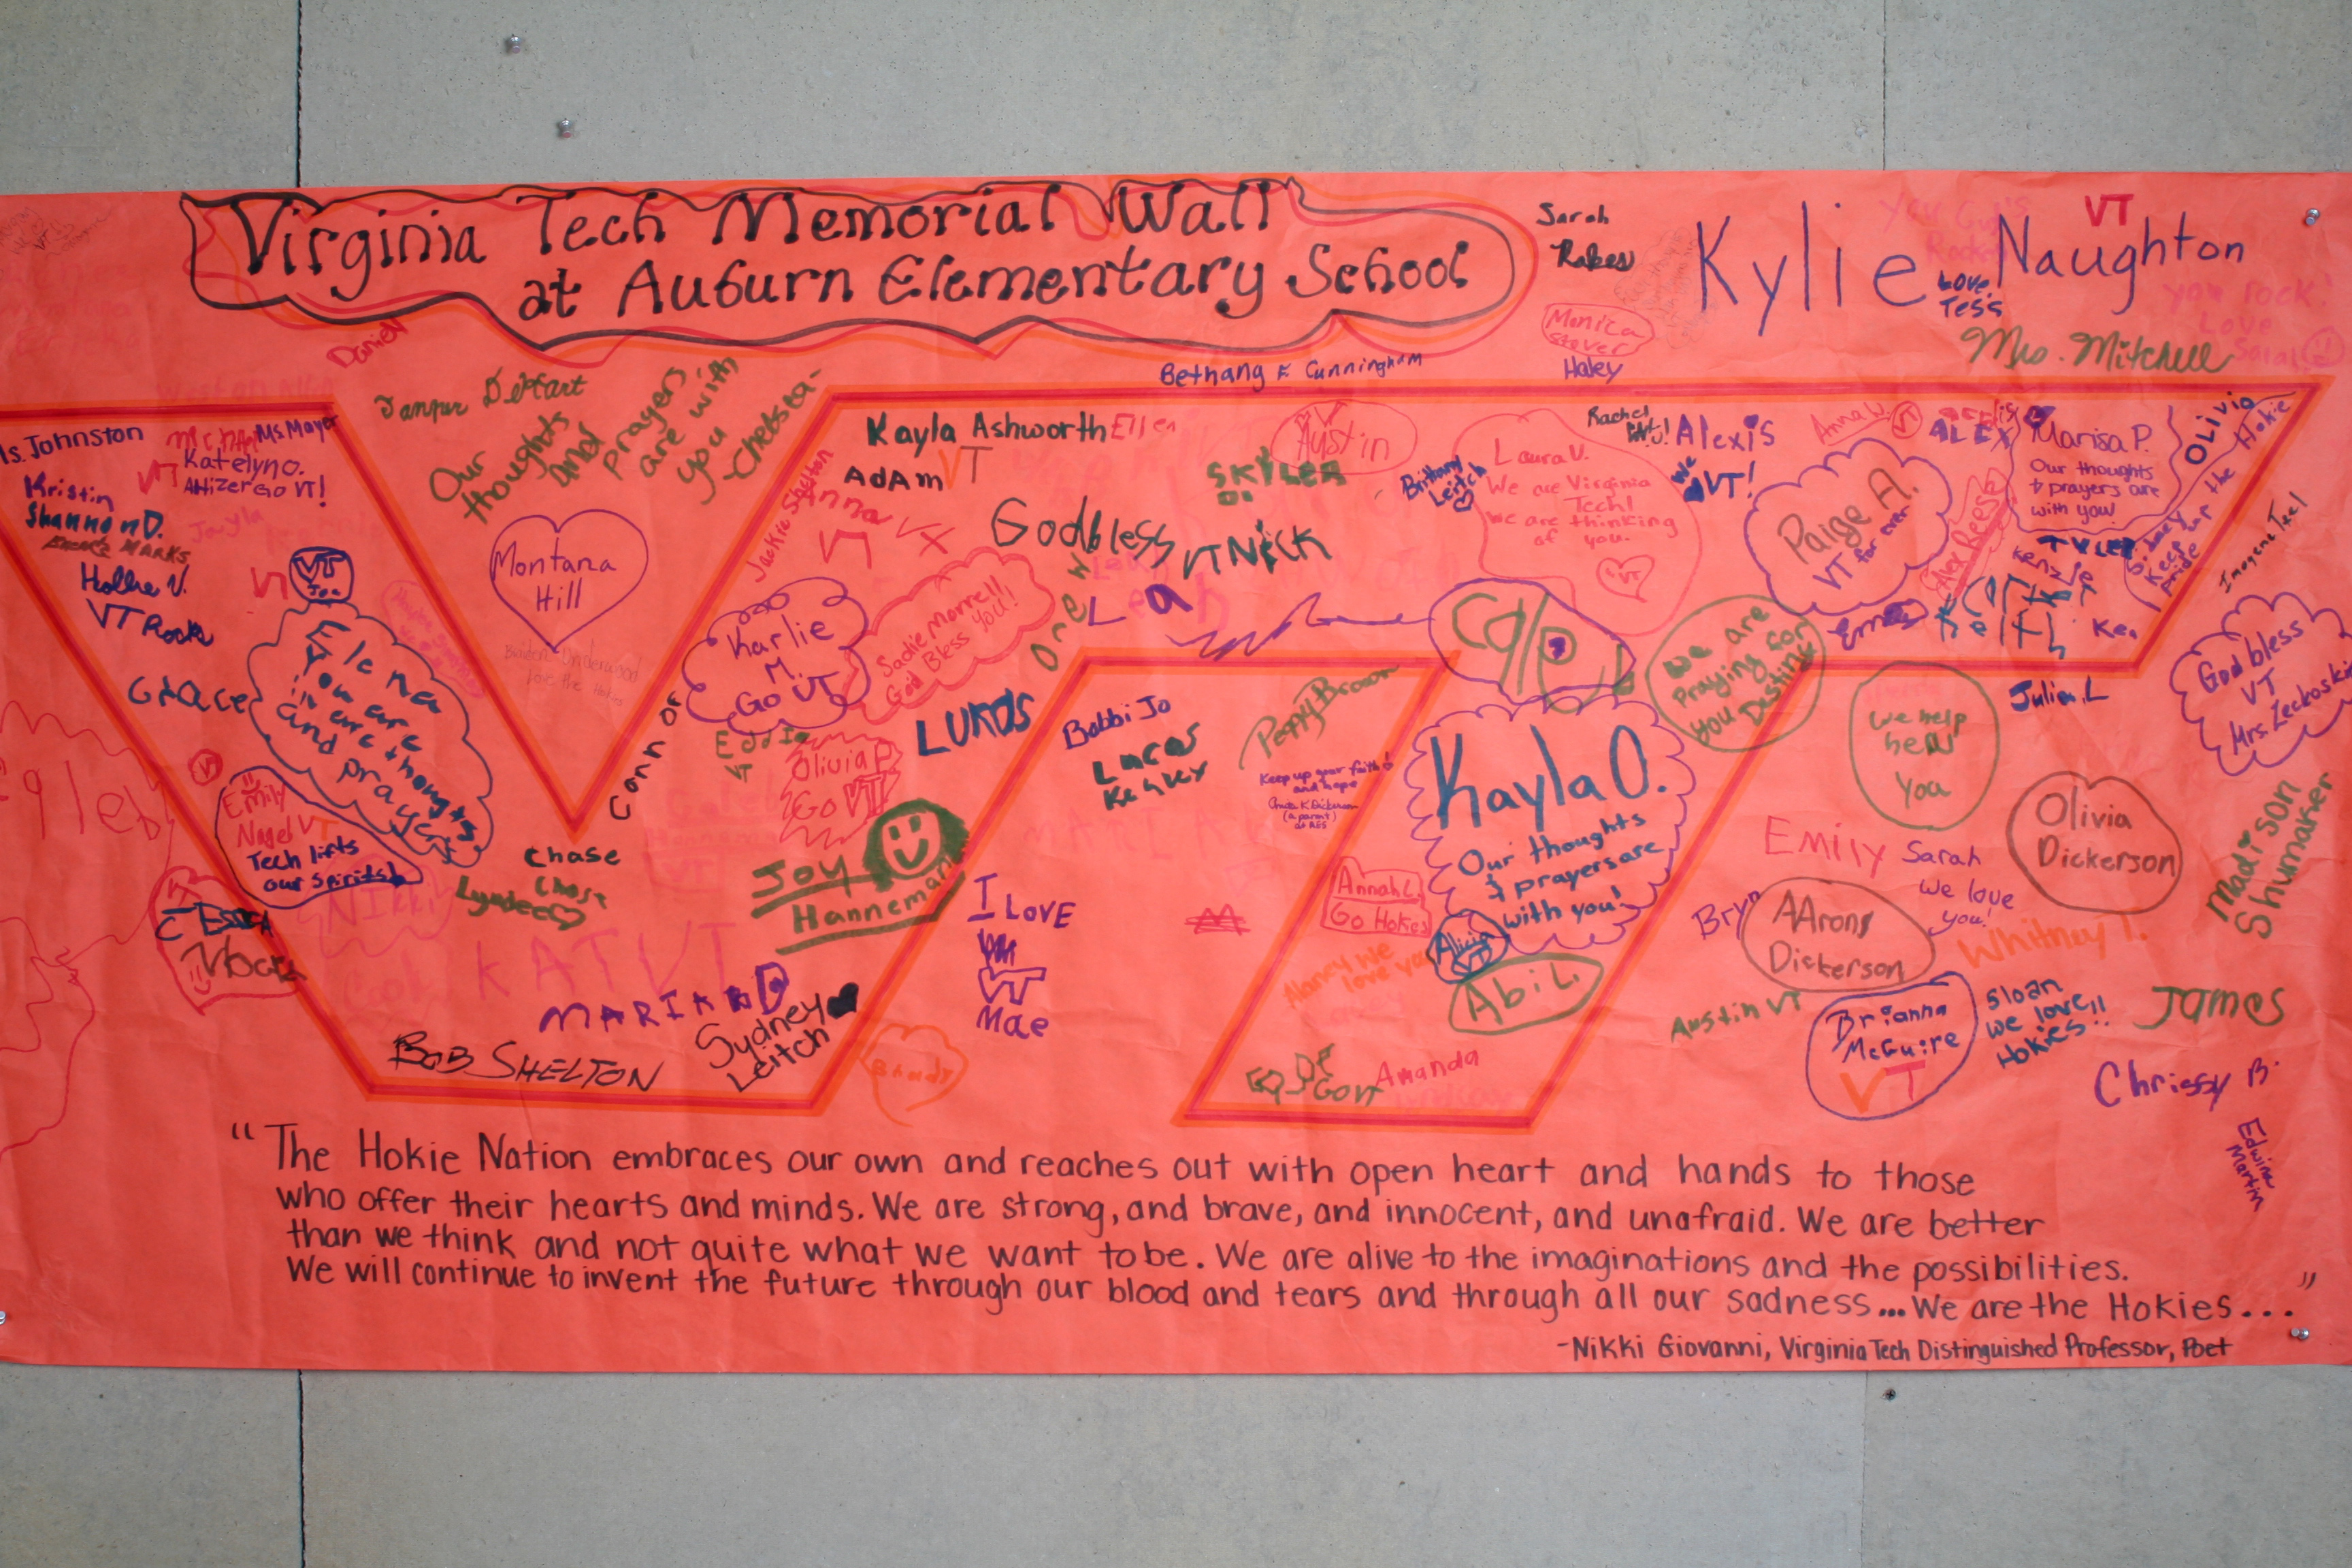 Virginia Tech Memorial Wall
at Auburn Elementary School
Sarah
Rakes
Kylie Naughton
VT
Love,
Tess
you rock!
Love
Sarah
Mrs. Mitchell
Monica
Stover
Haley
Daniel
Bethany E Cunningham
Our
thoughts
and
prayers
are with
you
-Chelsea-
Ms. Johnston
Ms. Mayer
Katelyn O.
Altizer Go VT!
VT
Kristin
Shannon D.
Jayla
Hollie V.
VT Rock
VT
VT
Grace
Elena
You are
in are thoughts
and prayers
Montana
Hill
Jackie Shelton
Kayla Ashworth
Ellen
Adam
VT
Anna
VT
God bless
VT
NICK
SKYLER
Austin
Brittany
Leitch
Laura V.
We are Virginia
Tech!
We are thinking
of you.
VT
Rachel
Alexis
We
VT!
Anna W.
VT
ALEX
Marisa P.
Our thoughts
& prayers are
with you!
Olivia
Keep up the Hokie
pride
Paige A.
VT for ever
Alex Reese
TYLER
Kenzie
Keith
Imogene Teel
Karlie
M.
Go VT
Sadie Morrell
God Bless You!
Drew
Leah
We are
Praying for
you Destinee
God bless
VT
Mrs. Zeckoski
Connor
Eddie
VT
Olivia P.
Go VT
LUKAS
Bobbi Jo
Lucas
Peggy Brown
Keep up your faith
and hope
Anita K. Dickerson
(a parent)
at AES
Kayla O.
Our thoughts
& prayers are
with you!
Julia L
We help
heal
you
Olivia
Dickerson
Madison
Shumaker
Emily
Nagel VT
Tech lifts
our spirits!
Chase
Lyndee
Nikki
KAT VT
Joy
Hanneman
I Love
VT
Mae
Annah L.
Go Hokies
Alicia
VT
Abi L.
Emily
Sarah
we love
you!
Bryn
AArons
Dickerson
Whitney T.
MARIAH D
Sydney
Leitch
BOB SHELTON
Amanda
Austin VT
Brianna
McGuire
VT
Sloan
we love!!
Hokies!!
James
Chrissy B.
Edwina
Martin
"The Hokie Nation embraces our own and reaches out with open heart and hands to those
who offer their hearts and minds. We are strong, and brave, and innocent, and unafraid. We are better
than we think and not quite what we want to be. We are alive to the imaginations and the possibilities.
We will continue to invent the future through our blood and tears and through all our sadness... We are the Hokies..."
-Nikki Giovanni, Virginia Tech Distinguished Professor, Poet